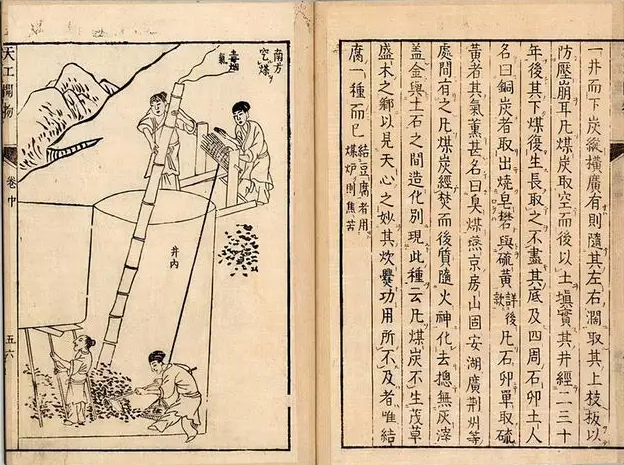 一井而下炭縱橫廣有則隨其左右濶取其上枝板以
防壓崩耳凡煤炭取空而後以土填實其井經二三十
年後其下煤後生長取之不盡其底及四周石卵土人
名曰銅炭者取出燒皂礬與硫黃詳後款凡石卵單取硫
黃者其氣薰甚名曰臭煤燕京房山固安湖廣荊州等
處間有之凡煤炭經焚而後質隨火神化去摠無灰滓
蓋金與土石之間造化別現此種云凡煤炭不生茂草
盛木之鄉以見天心之妙其炊爨功用所不及者唯結
腐一種而已結豆腐者用煤炉則焦苦
南方
空煤
毒烟
氣
井內
天工開物
卷中
五六